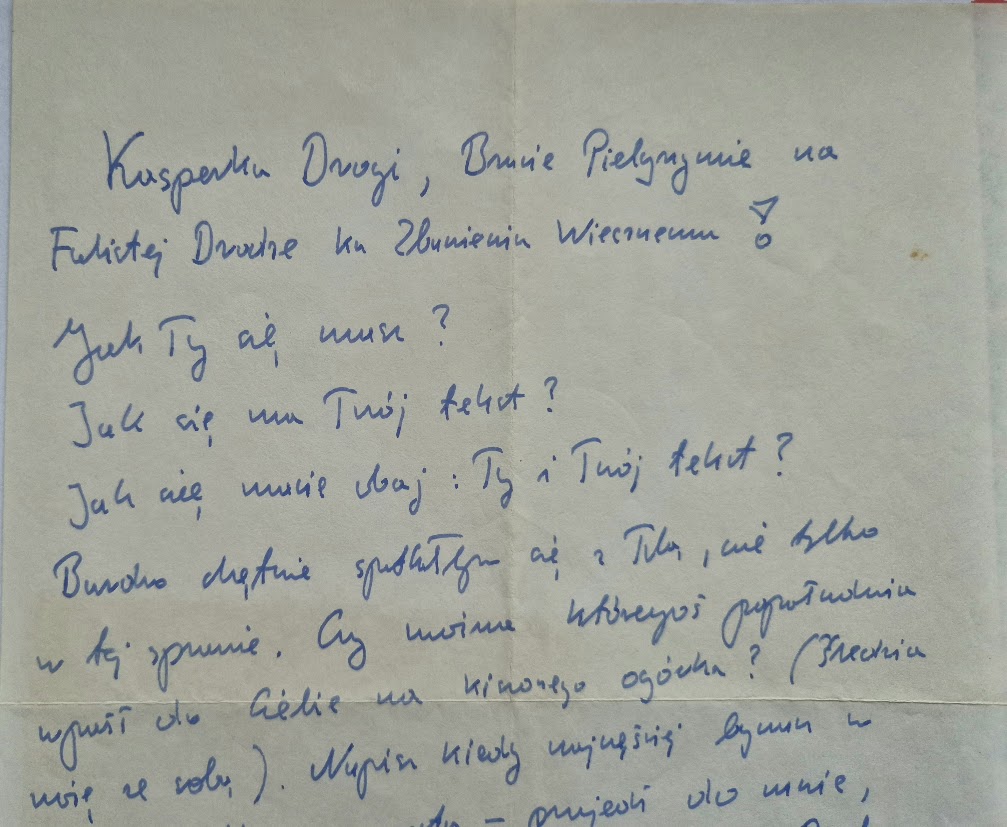 Kasperku Drogi, Bracie Pielgrzymie na
Falistej Drodze ku Zbawieniu Wiecznemu !
Jak Ty się masz ?
Jak się ma Twój tekst ?
Jak się macie obaj : Ty i Twój tekst ?
Bardzo chętnie spotkałbym się z Tobą, nie tylko
w tej sprawie. Czy można któregoś popołudnia
wpaść do Ciebie na kiszonego ogórka ? (
ze sobą). Napisz kiedy najczęściej bywasz w
– przyjedź do mnie,